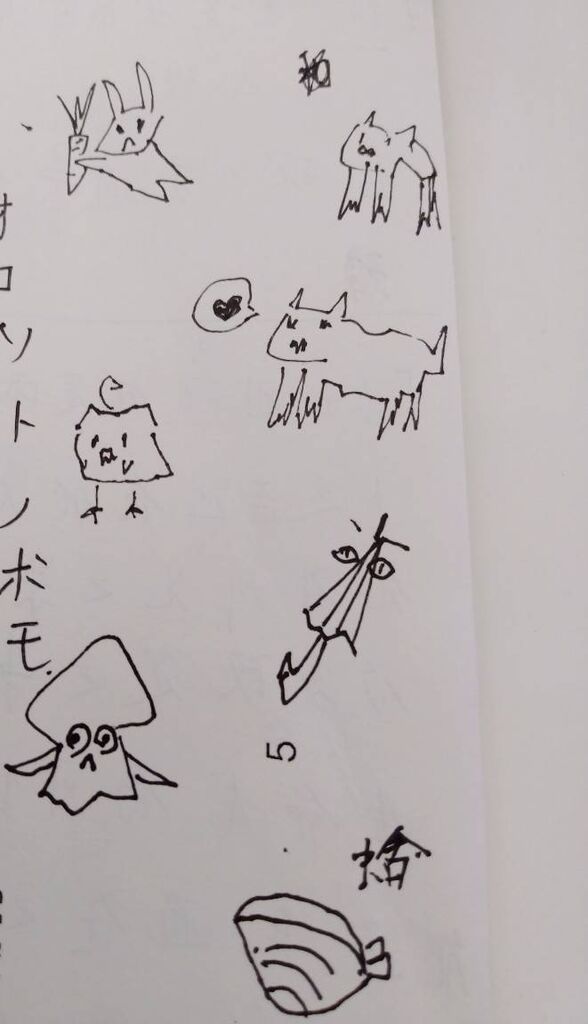 オコソトノボモ
5
蛤